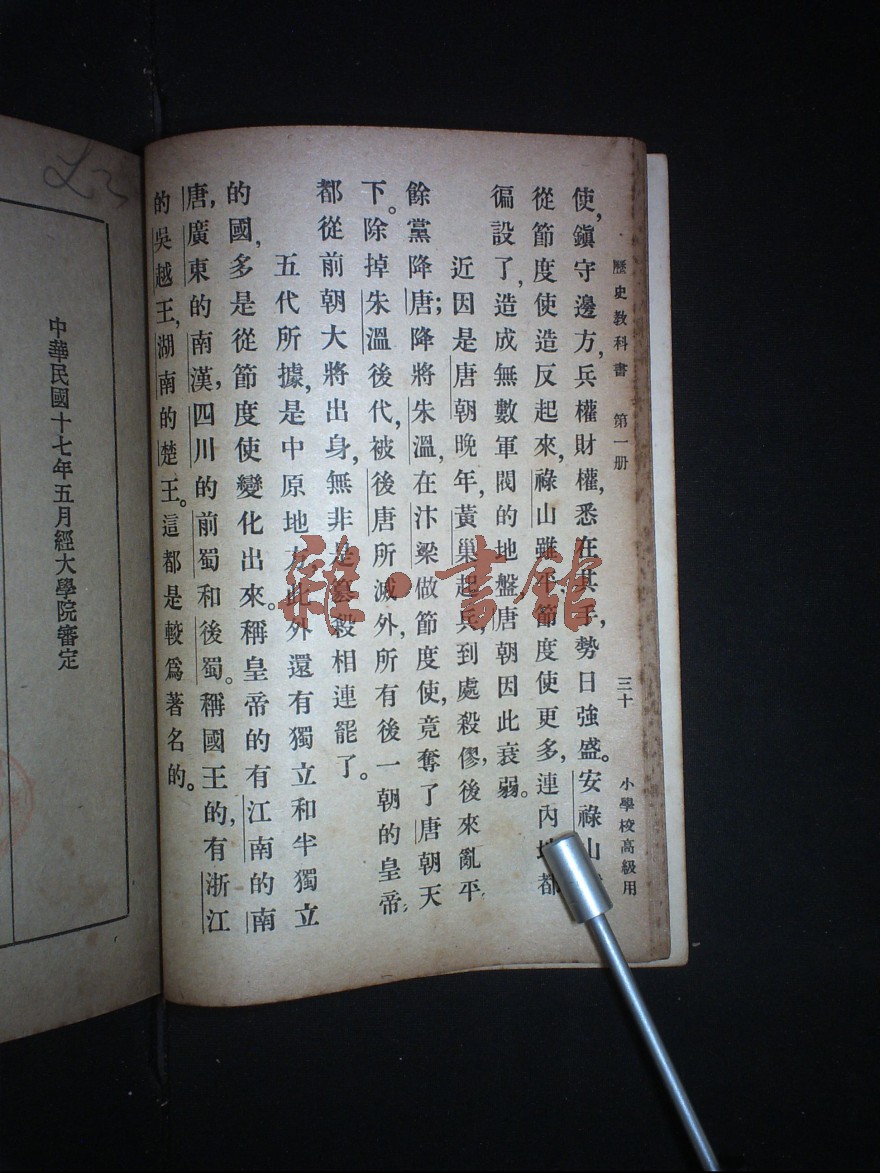 歷史教科書 第一册 三十 小學校高級用
使,鎭守邊方,兵權財權,悉在其手,勢日強盛。安祿山
從節度使造反起來,祿山雖平,節度使更多,連內地都
徧設了,造成無數軍閥的地盤,唐朝因此衰弱。
近因是唐朝晚年,黃巢起兵,到處殺僇,後來亂平,
餘黨降唐;降將朱溫,在汴梁做節度使,竟奪了唐朝天
下。除掉朱溫後代,被後唐所滅外,所有後一朝的皇帝,
都從前朝大將出身,無非是篡殺相連罷了。
五代所據,是中原地方,此外還有獨立和半獨立
的國,多是從節度使變化出來。稱皇帝的有江南的南
唐,廣東的南漢,四川的前蜀和後蜀。稱國王的,有浙江
的吳越王,湖南的楚王。這都是較爲著名的。
中華民國十七年五月經大學院審定
雜·書館